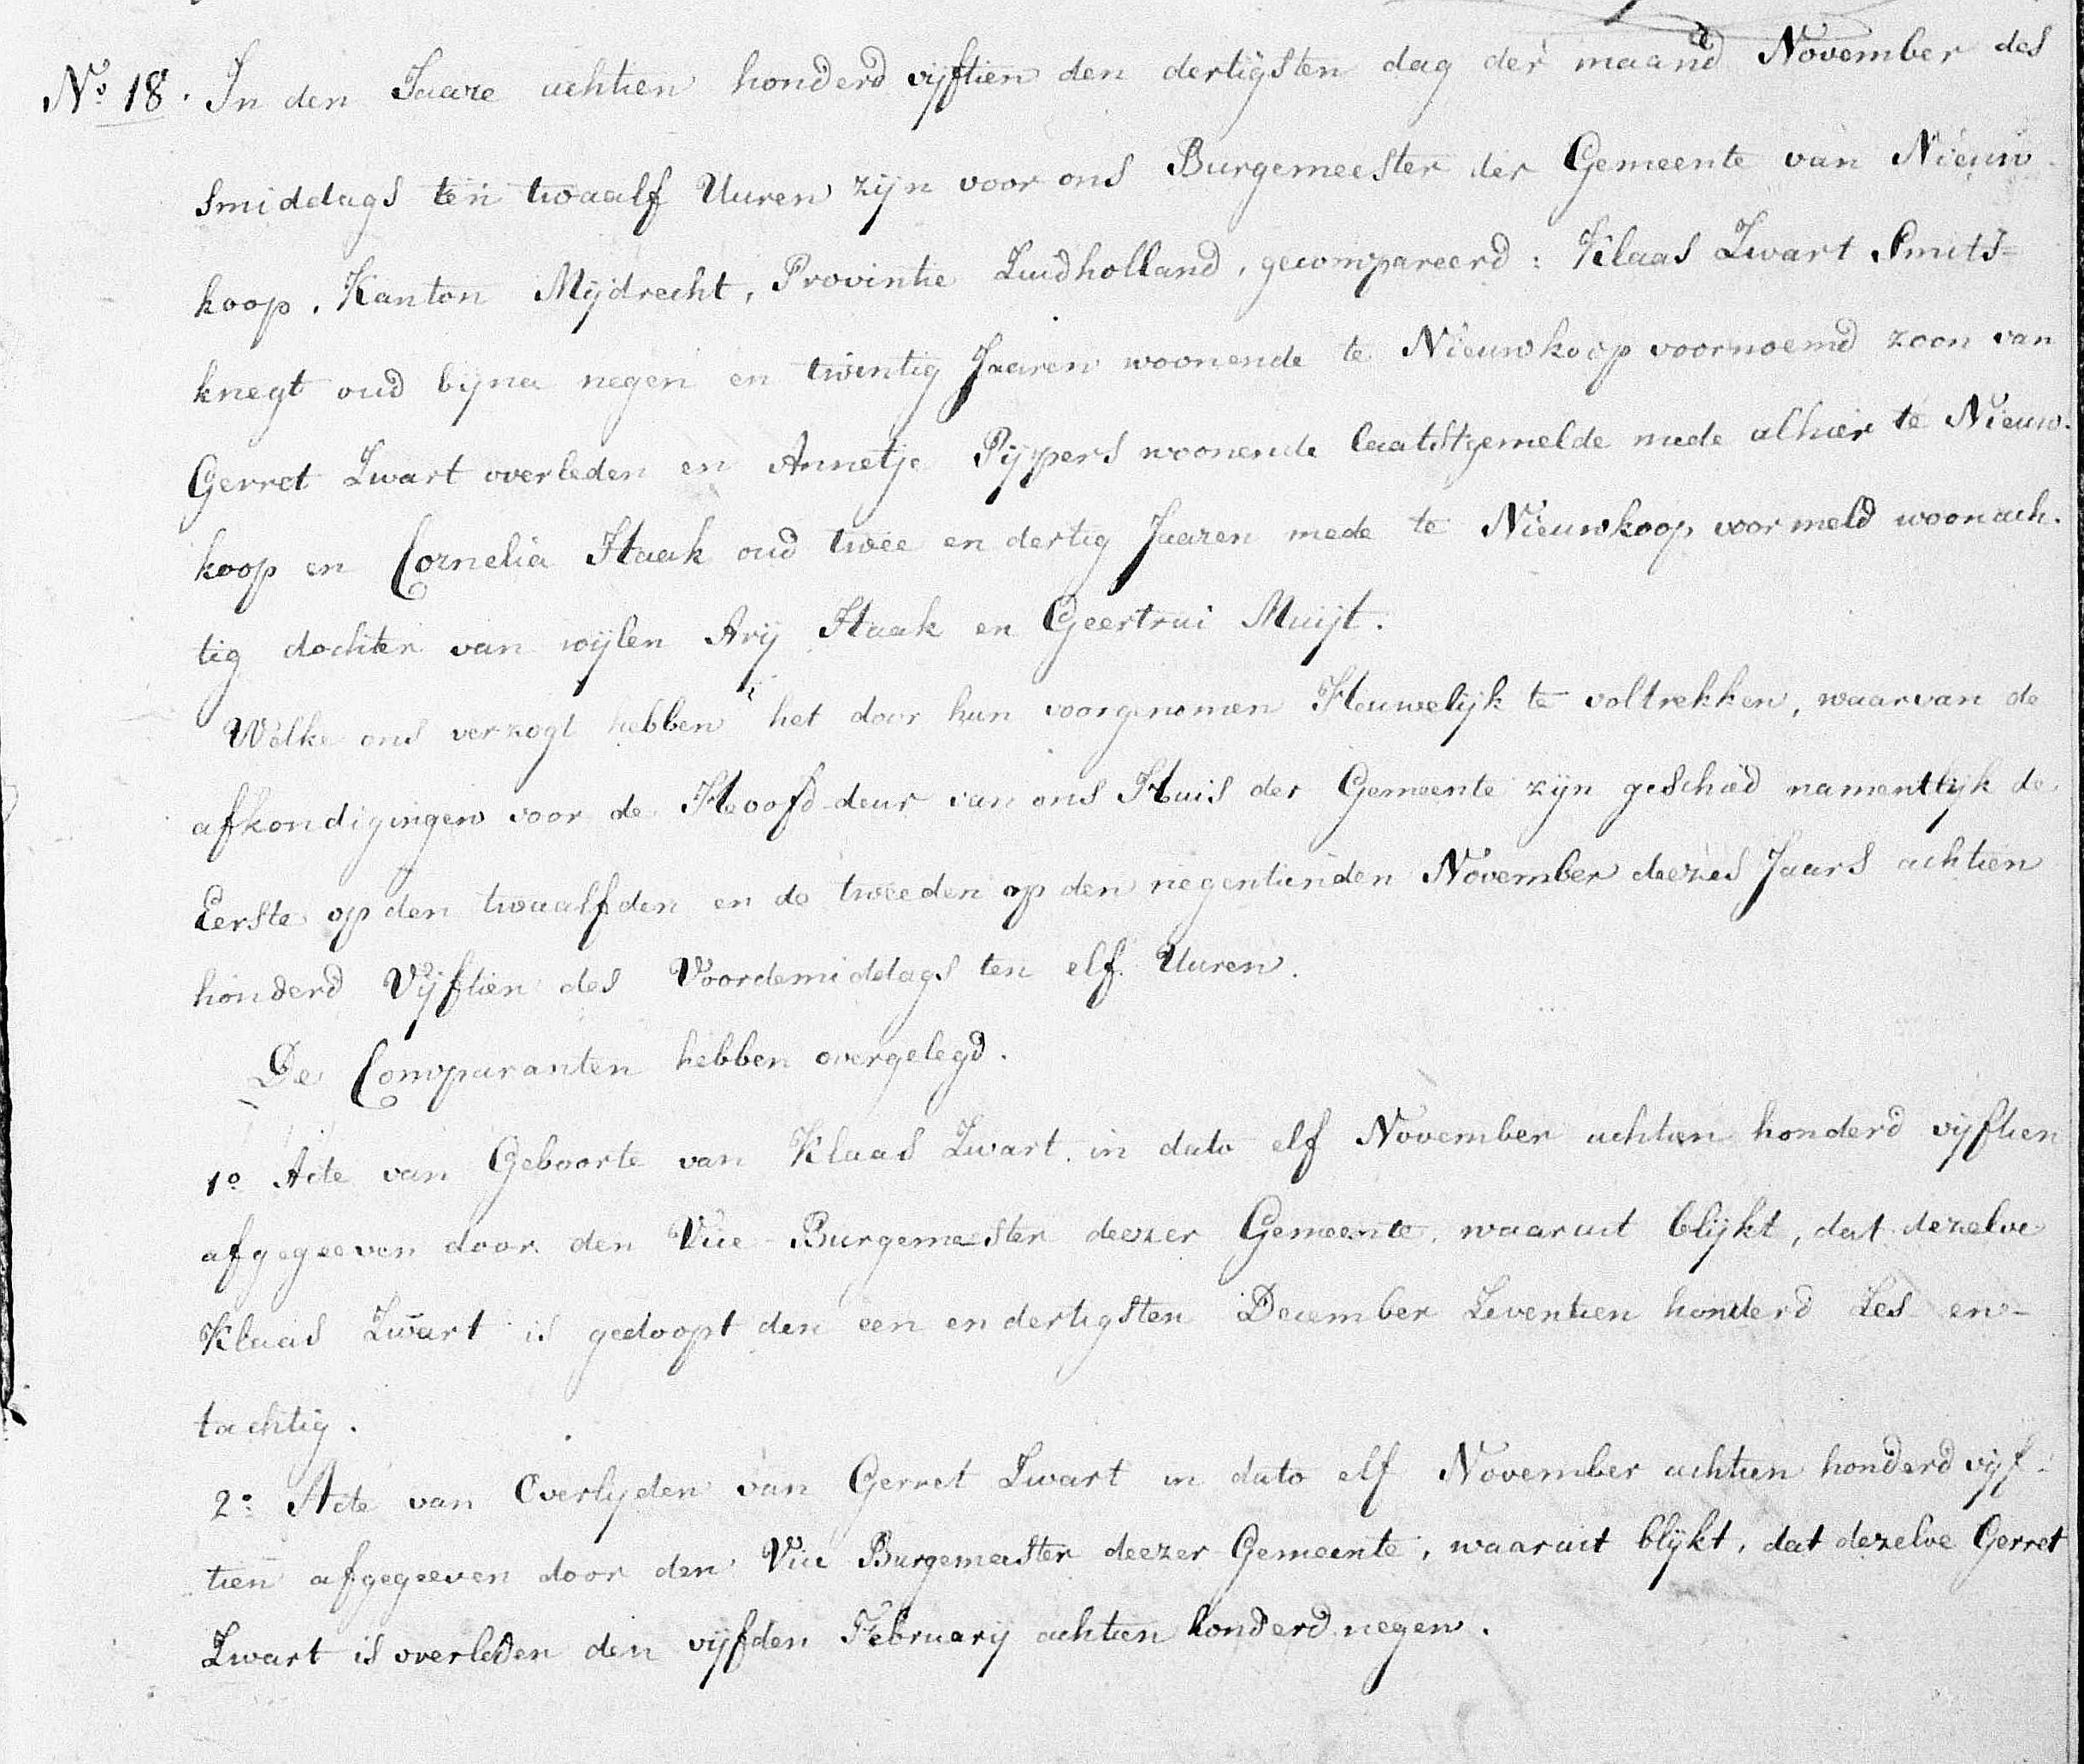 No 18. In den Jaare achtien honderd vijftien den dertigsten dag der maand November des
smiddags ten twaalf Uuren zijn voor ons Burgemeester der Gemeente van Nieuw-
koop, Kanton Mijdrecht, Provintie Zuidholland, gecompareerd: Klaas Zwart Smits=
knegt oud bijna negen en twintig Jaaren woonende te Nieuwkoop voornoemd zoon van
Gerret Zwart overleden en Annetje Pijpers woonende laatstgemelde mede alhier te Nieuw-
koop en Cornelia Haak oud twee en dertig Jaaren mede te Nieuwkoop voormeld woonach-
tig dochter van wijlen Arij Haak en Geertrui Muijt.
Welke ons verzogt hebben het door hun voorgenomen Heuwelijk te voltrekken, waarvan de
afkondigingen voor de Hoofd-deur van ons Huis der Gemeente zijn geschied namentlijk de
Eerste op den twaalfden en de tweeden op den negentienden November deezes Jaars achtien
honderd Vijftien des Voordemiddags ten elf Uuren.
De Comparanten hebben overgelegd.
1o Acte van Geboorte van Klaas Zwart in dato elf November achtien honderd vijftien
afgegeeven door den Vice-Burgemeester deezer Gemeente, waaruit blijkt, dat dezelve
Klaas Zwart is gedoopt den een en dertigsten December Zeventien honderd Zes en-
tachtig.
2o Acte van Overlijden van Gerret Zwart in dato elf November achtien honderd vijf-
tien afgegeeven door den Vice Burgemeester deezer Gemeente, waaruit blijkt, dat dezelve Gerret
Zwart is overleden den vijfden February achtien honderd negen.